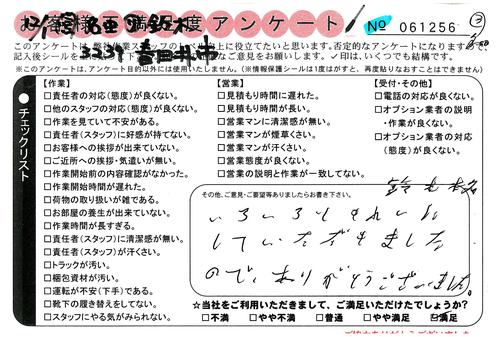 お客様 満足度アンケート
No 061256
このアンケートは、弊社作業スタッフの
に役立てたいと思います。否定的なアンケートになりますが
記入後シールを
ご意見をお願いします。✓印は、いくつでも結構です。
※このアンケートは、アンケート目的以外には使用いたしません。(※情報保護シールは1度はがすと、再度貼りなおすことはできません)
チェックリスト
【作業】
□責任者の対応(態度)が良くない。
□他のスタッフの対応(態度)が良くない。
□作業を見ていて不安がある。
□責任者(スタッフ)に好感が持てない。
□お客様への挨拶が出来ていない。
□ご近所への挨拶・気遣いが無い。
□作業開始前の内容確認がなかった。
□作業開始時間が遅れた。
□荷物の取り扱いが雑である。
□お部屋の養生が出来ていない。
□作業時間が長すぎる。
□責任者(スタッフ)に清潔感が無い。
□責任者(スタッフ)が汗くさい。
□トラックが汚い。
□梱包資材が汚い。
□運転が不安(下手)である。
□靴下の履き替えをしてない。
□スタッフにやる気がみられない。
【営業】
□見積もり時間に遅れた。
□見積もり時間が長い。
□営業マンに清潔感が無い。
□営業マンが煙草くさい。
□営業マンが汗くさい。
□営業態度が良くない。
□営業の説明と作業が一致してない。
【受付・その他】
□電話の対応が良くない。
□オプション業者の説明
・作業が良くない。
□オプション業者の対応
(態度)が良くない。
その他、ご意見・ご要望等ありましたらお書き下さい。
いろいろときれいに
していただきました
ので、ありがとうございました。
☆当社をご利用いただきまして、ご満足いただけたでしょうか?
□不満 □やや不満 □普通 □やや満足 ☑満足